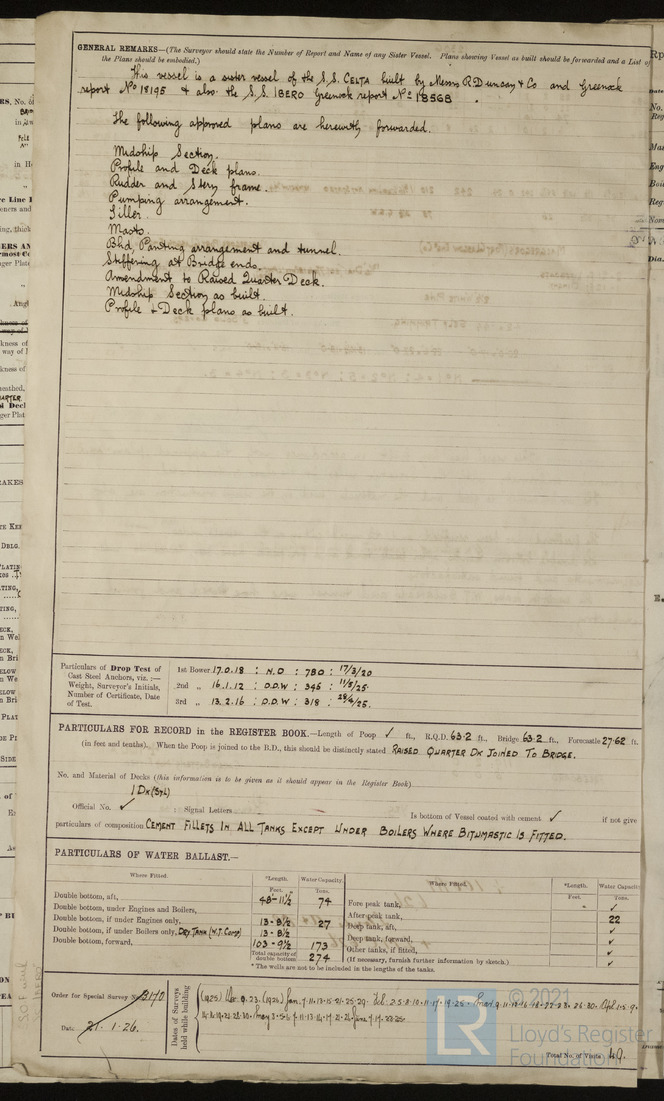 GENERAL REMARKS—(The Surveyor should state the Number of Report and Name of any Sister Vessel. Plans showing Vessel as built should be forwarded and a List of
the Plans should be embodied.)
This vessel is a sister vessel of the S.S. CELTA built by Messrs R Duncan & Co and Greenock
report No 18195 & also the S.S. IBERO Greenock report No 18568.
The following approved plans are herewith forwarded.
Midship Section.
Profile and Deck plans.
Rudder and Stern frame.
Pumping arrangement.
Tiller.
Masts.
Bhd, Panting arrangement and tunnel.
Stiffening at Bridge ends.
Amendment to Raised Quarter Deck.
Midship Section as built.
Profile & Deck plans as built.
Particulars of Drop Test of
Cast Steel Anchors, viz. :—
Weight, Surveyor's Initials,
Number of Certificate, Date
of Test.
1st Bower 17.0.18 : N.D : 780 : 17/3/20
2nd „ 16.1.12 : D.D.W : 345 : 11/3/25.
3rd „ 13.2.16 : D.D.W : 318 : 28/4/25.
PARTICULARS FOR RECORD in the REGISTER BOOK.—Length of Poop ✓ ft., R.Q.D. 63.2 ft., Bridge 63.2 ft., Forecastle 27.62 ft.
(in feet and tenths). When the Poop is joined to the B.D., this should be distinctly stated RAISED QUARTER DK JOINED TO BRIDGE.
No. and Material of Decks (this information is to be given as it should appear in the Register Book)
1 DK (STL)
Official No. ✓ ; Signal Letters Is bottom of Vessel coated with cement ✓ if not give
particulars of composition CEMENT FILLETS IN ALL TANKS EXCEPT UNDER BOILERS WHERE BITUMASTIC IS FITTED.
PARTICULARS OF WATER BALLAST.—
Where Fitted. *Length. Water Capacity. Where Fitted. *Length. Water Capacity
Feet. Tons. Feet. Tons.
Double bottom, aft, 48-11½ 74 Fore peak tank, ✓
Double bottom, under Engines and Boilers, After peak tank, 22
Double bottom, if under Engines only, 13-8½ 27 Deep tank, aft, ✓
Double bottom, if under Boilers only, DRY TANK (W.T. COMP) 13-8½ Deep tank, forward, ✓
Double bottom, forward, 103-9½ 173 Other tanks, if fitted, ✓
Total capacity of double bottom 274 (If necessary, furnish further information by sketch.)
* The wells are not to be included in the lengths of the tanks.
Order for Special Survey No. 3170
Date 21.1.26.
Dates of Surveys
held while building
Total No. of Visits 49.
© 2021
LR
Lloyd's Register
Foundation